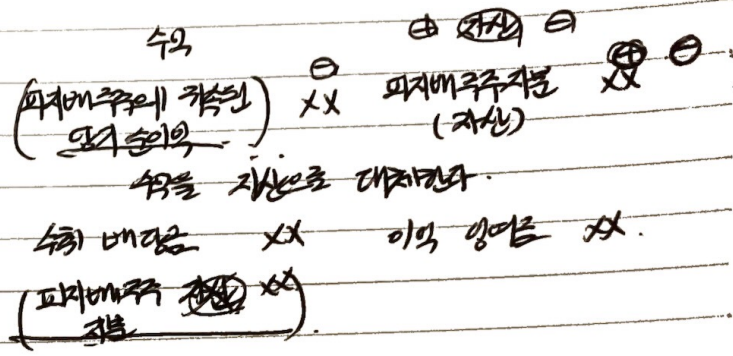 수익 ⊕ 자산 ⊖
⊖ ⊕ ⊖
(피지배주주에 귀속된 당기 순이익) XX 피지배주주지분 (자산) XX
수익을 자산으로 대체한다.
수취 배당금 XX 이익 잉여금 XX.
(피지배주주 지분 XX).